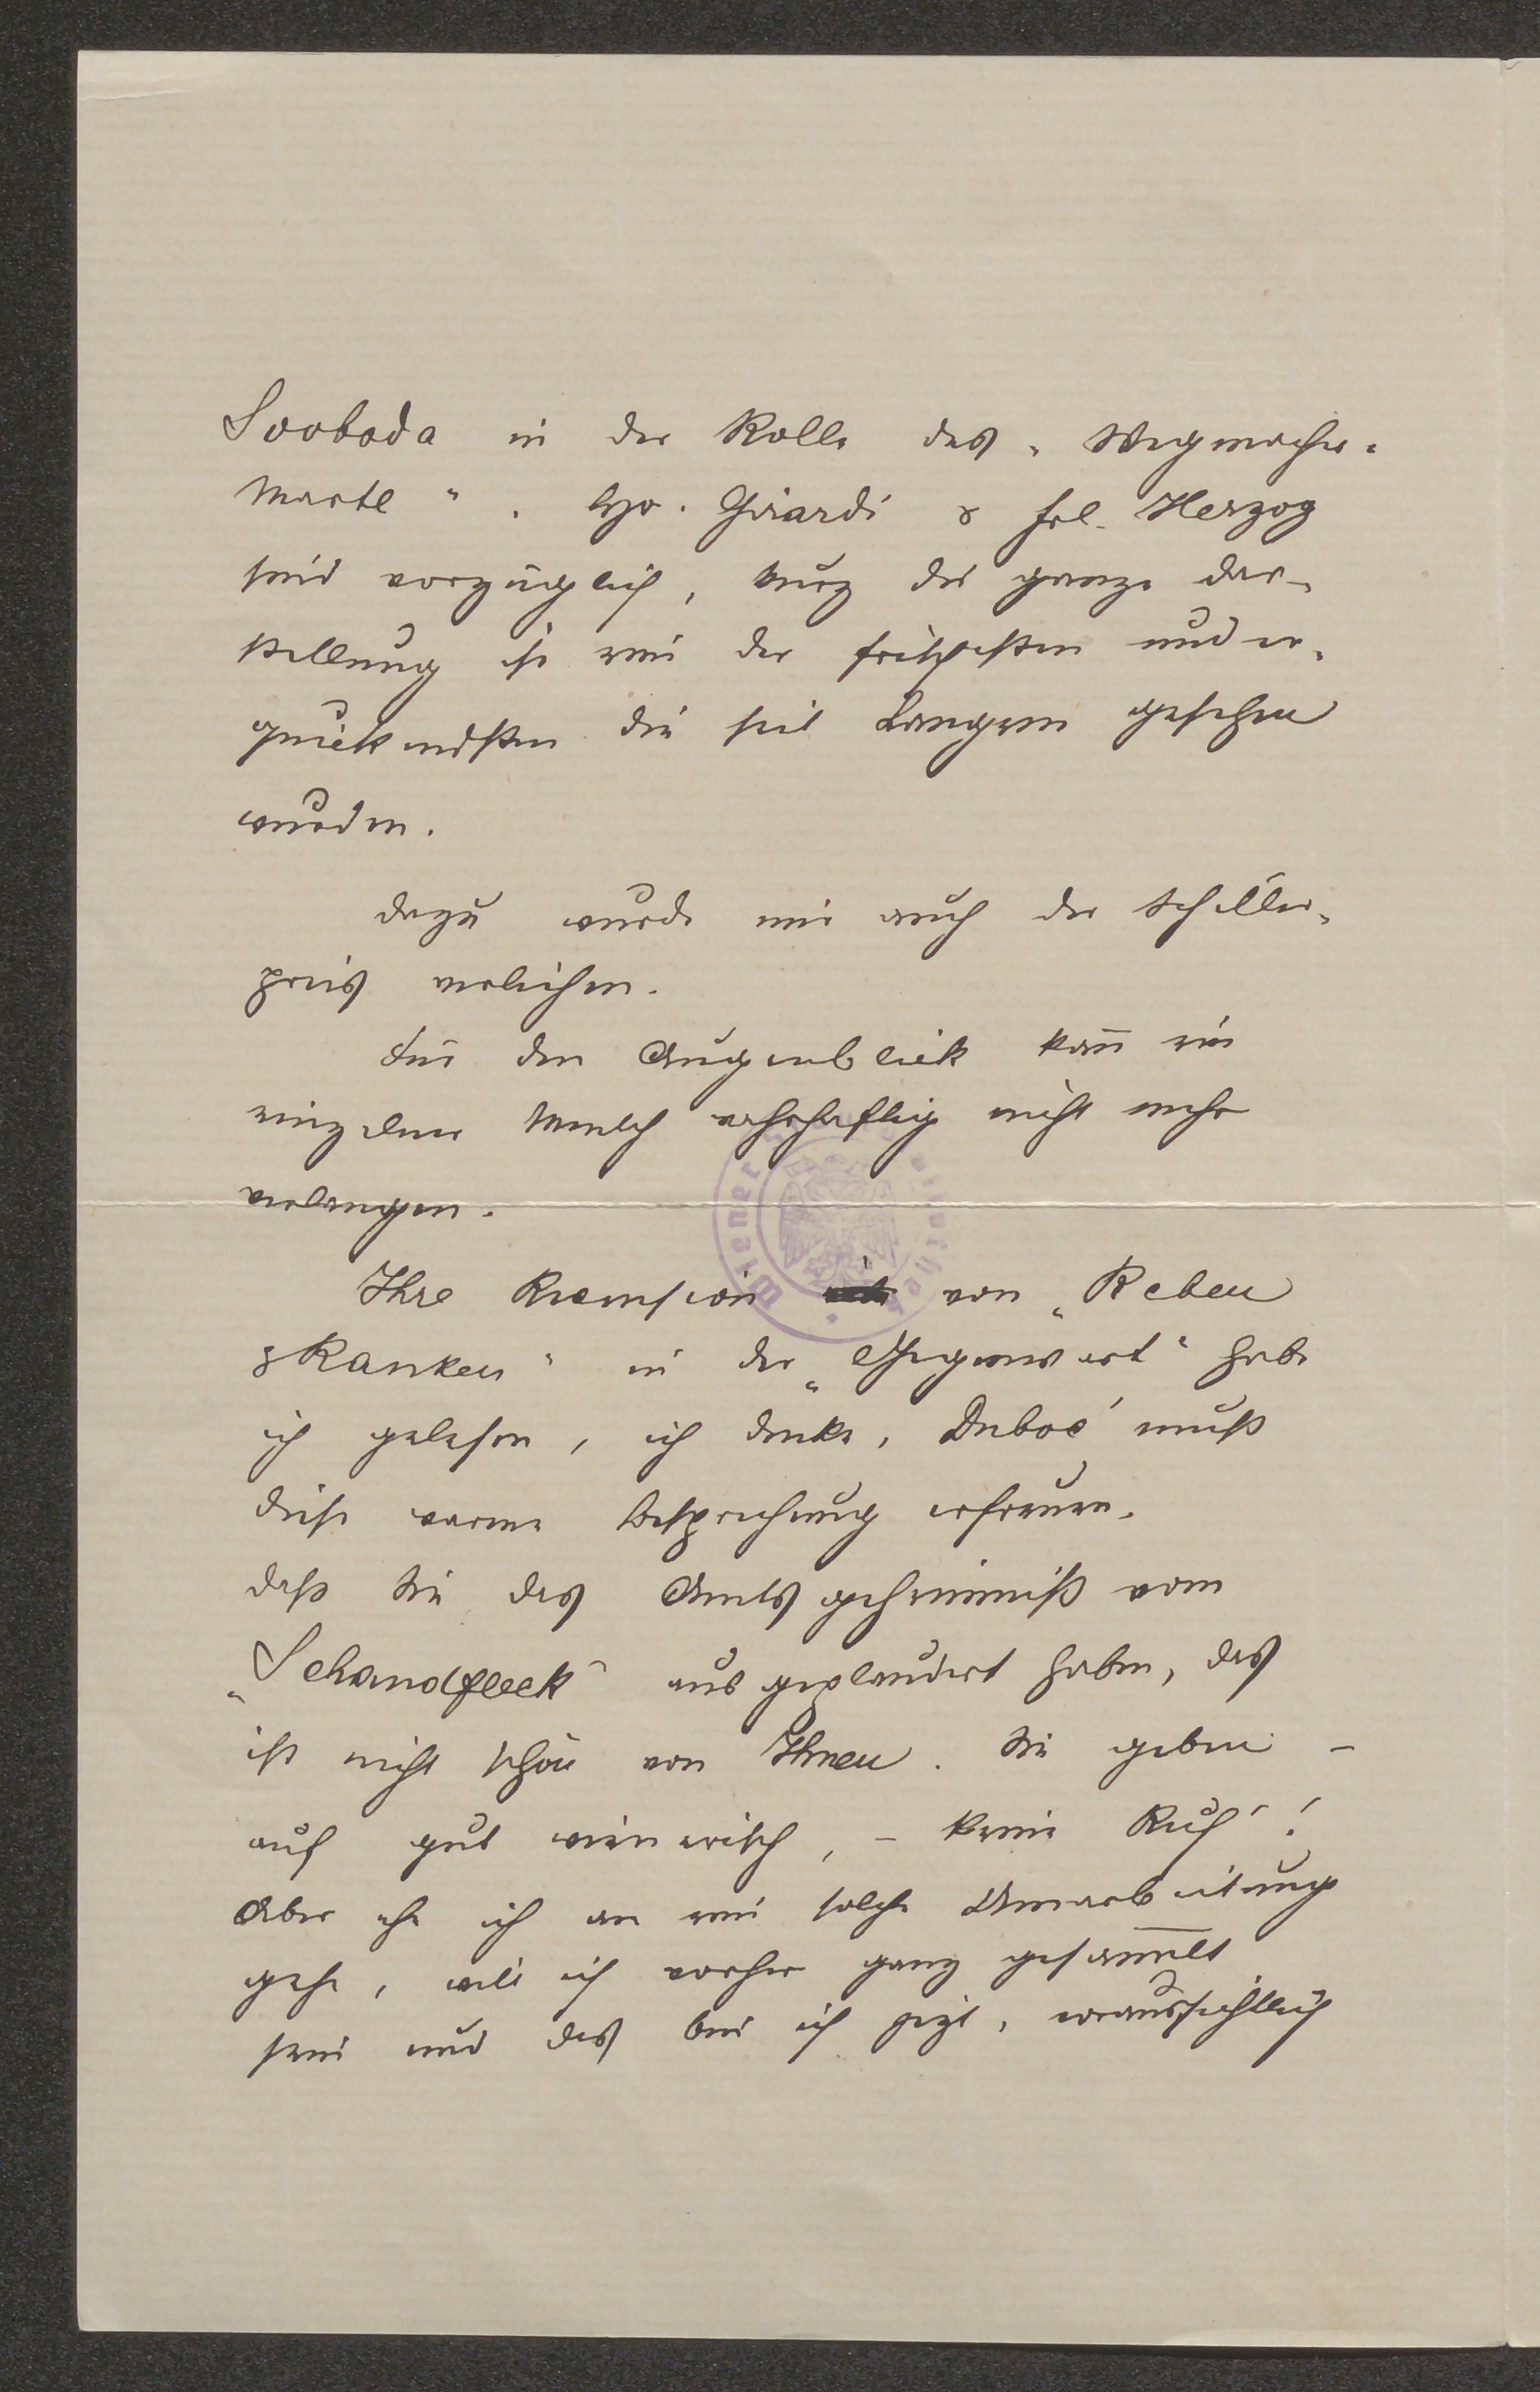 Svoboda in der Rolle des „Wegmacher-
Martl“. Hr. Girardi & Frl. Herzog
sind vorzüglich, kurz die ganze Dar-
stellung ist eine der frischesten und er-
quickendsten die seit Langem gesehen
wurden.
Dazu wurde mir auch der Schiller-
preis verliehen.
Für den Augenblick kan̅ ein
einzelner Mensch wahrhaftig nicht mehr
verlangen.
Ihre Rezension von „Reben
& Ranken“ in der „Gegenwart“ habe
ich gelesen, ich denke, Duboc muß
diese warme Besprechung erfreuen.
Daß Sie das Amtsgeheimniß vom
„Schandfleck“ ausgeplaudert haben, das
ist nicht schön von Ihnen. Sie geben –
auf gut wienerisch, – keine Ruh'!
Aber ehe ich an eine solche Umarbeitung
gehe, will ich vorher ganz gesam̅elt
sein und das bin ich jezt, voraussichtlich
Wiener